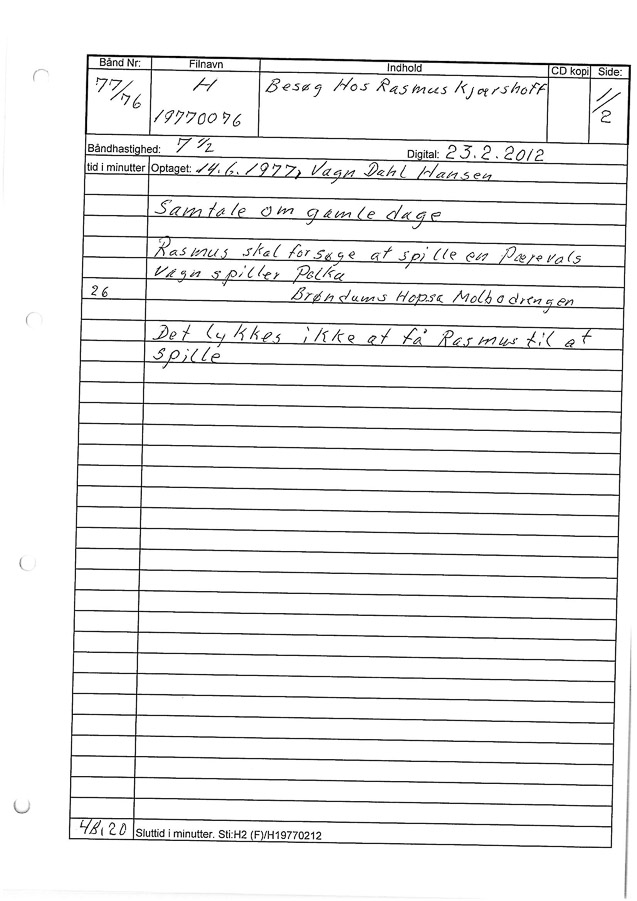 Bånd Nr: Filnavn Indhold CD kopi Side:
77/76 H Besøg Hos Rasmus Kjærshoff 1/2
19770076
Båndhastighed: 7 1/2 Digital: 23.2.2012
tid i minutter Optaget: 14.6.1977, Vagn Dahl Hansen
Samtale om gamle dage
Rasmus skal forsøge at spille en Pærevals
Vagn spiller Polka
26 Brøndums Hopsa Molbodrengen
Det lykkes ikke at få Rasmus til at
spille
48,20 Sluttid i minutter. Sti:H2 (F)/H19770212